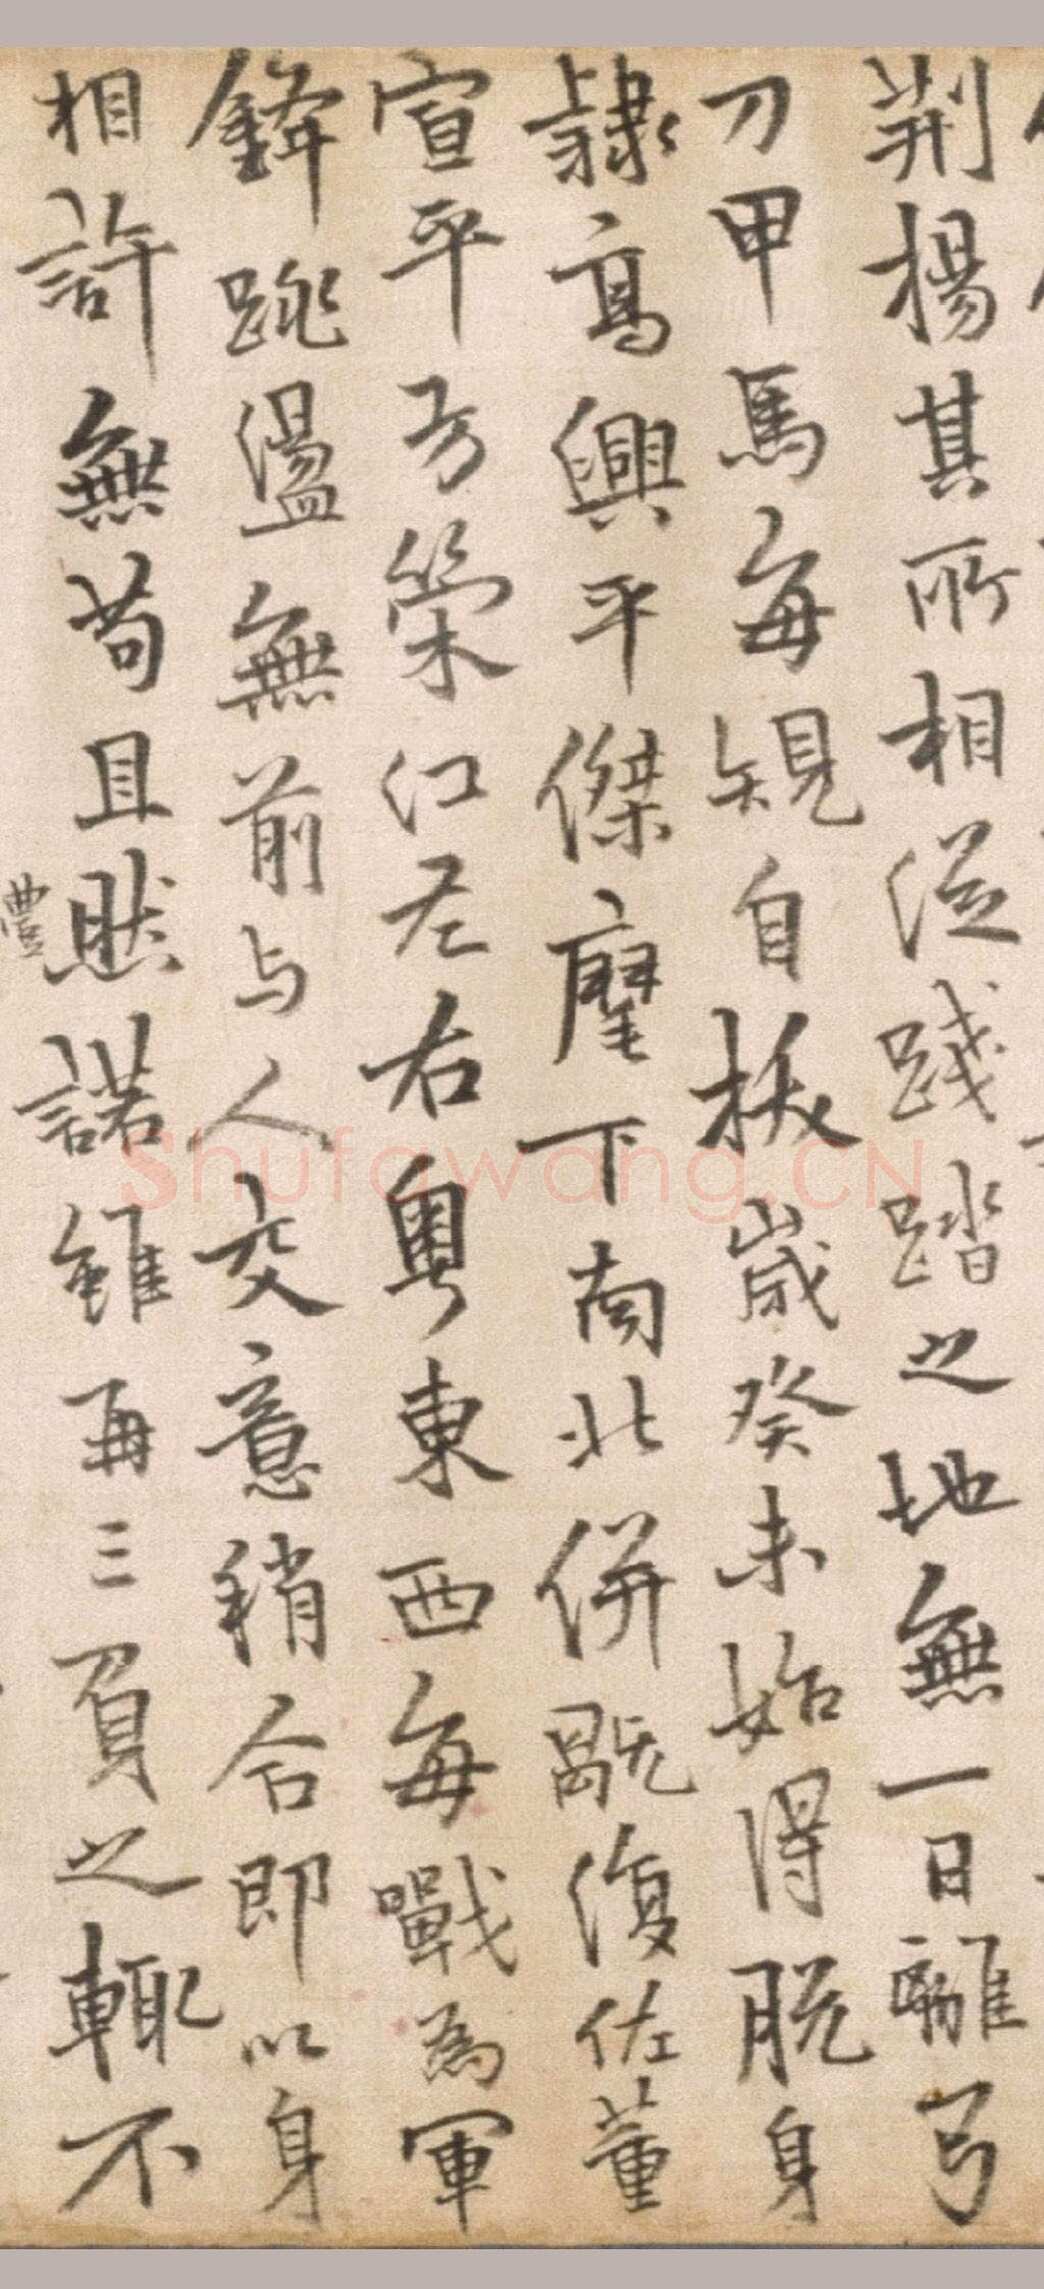 荆楊其所相從踐踏之地無一日離弓
刀甲馬每規自拔歲癸未始得脫身
隸高興平傑麾下南北併既復佐董
宣平方榮江左右粵東西每戰為軍
鋒跳盪無前与人交意稍合即以身
相許無苟且然諾雖再三負之輙不
豊
Shufawang.CN